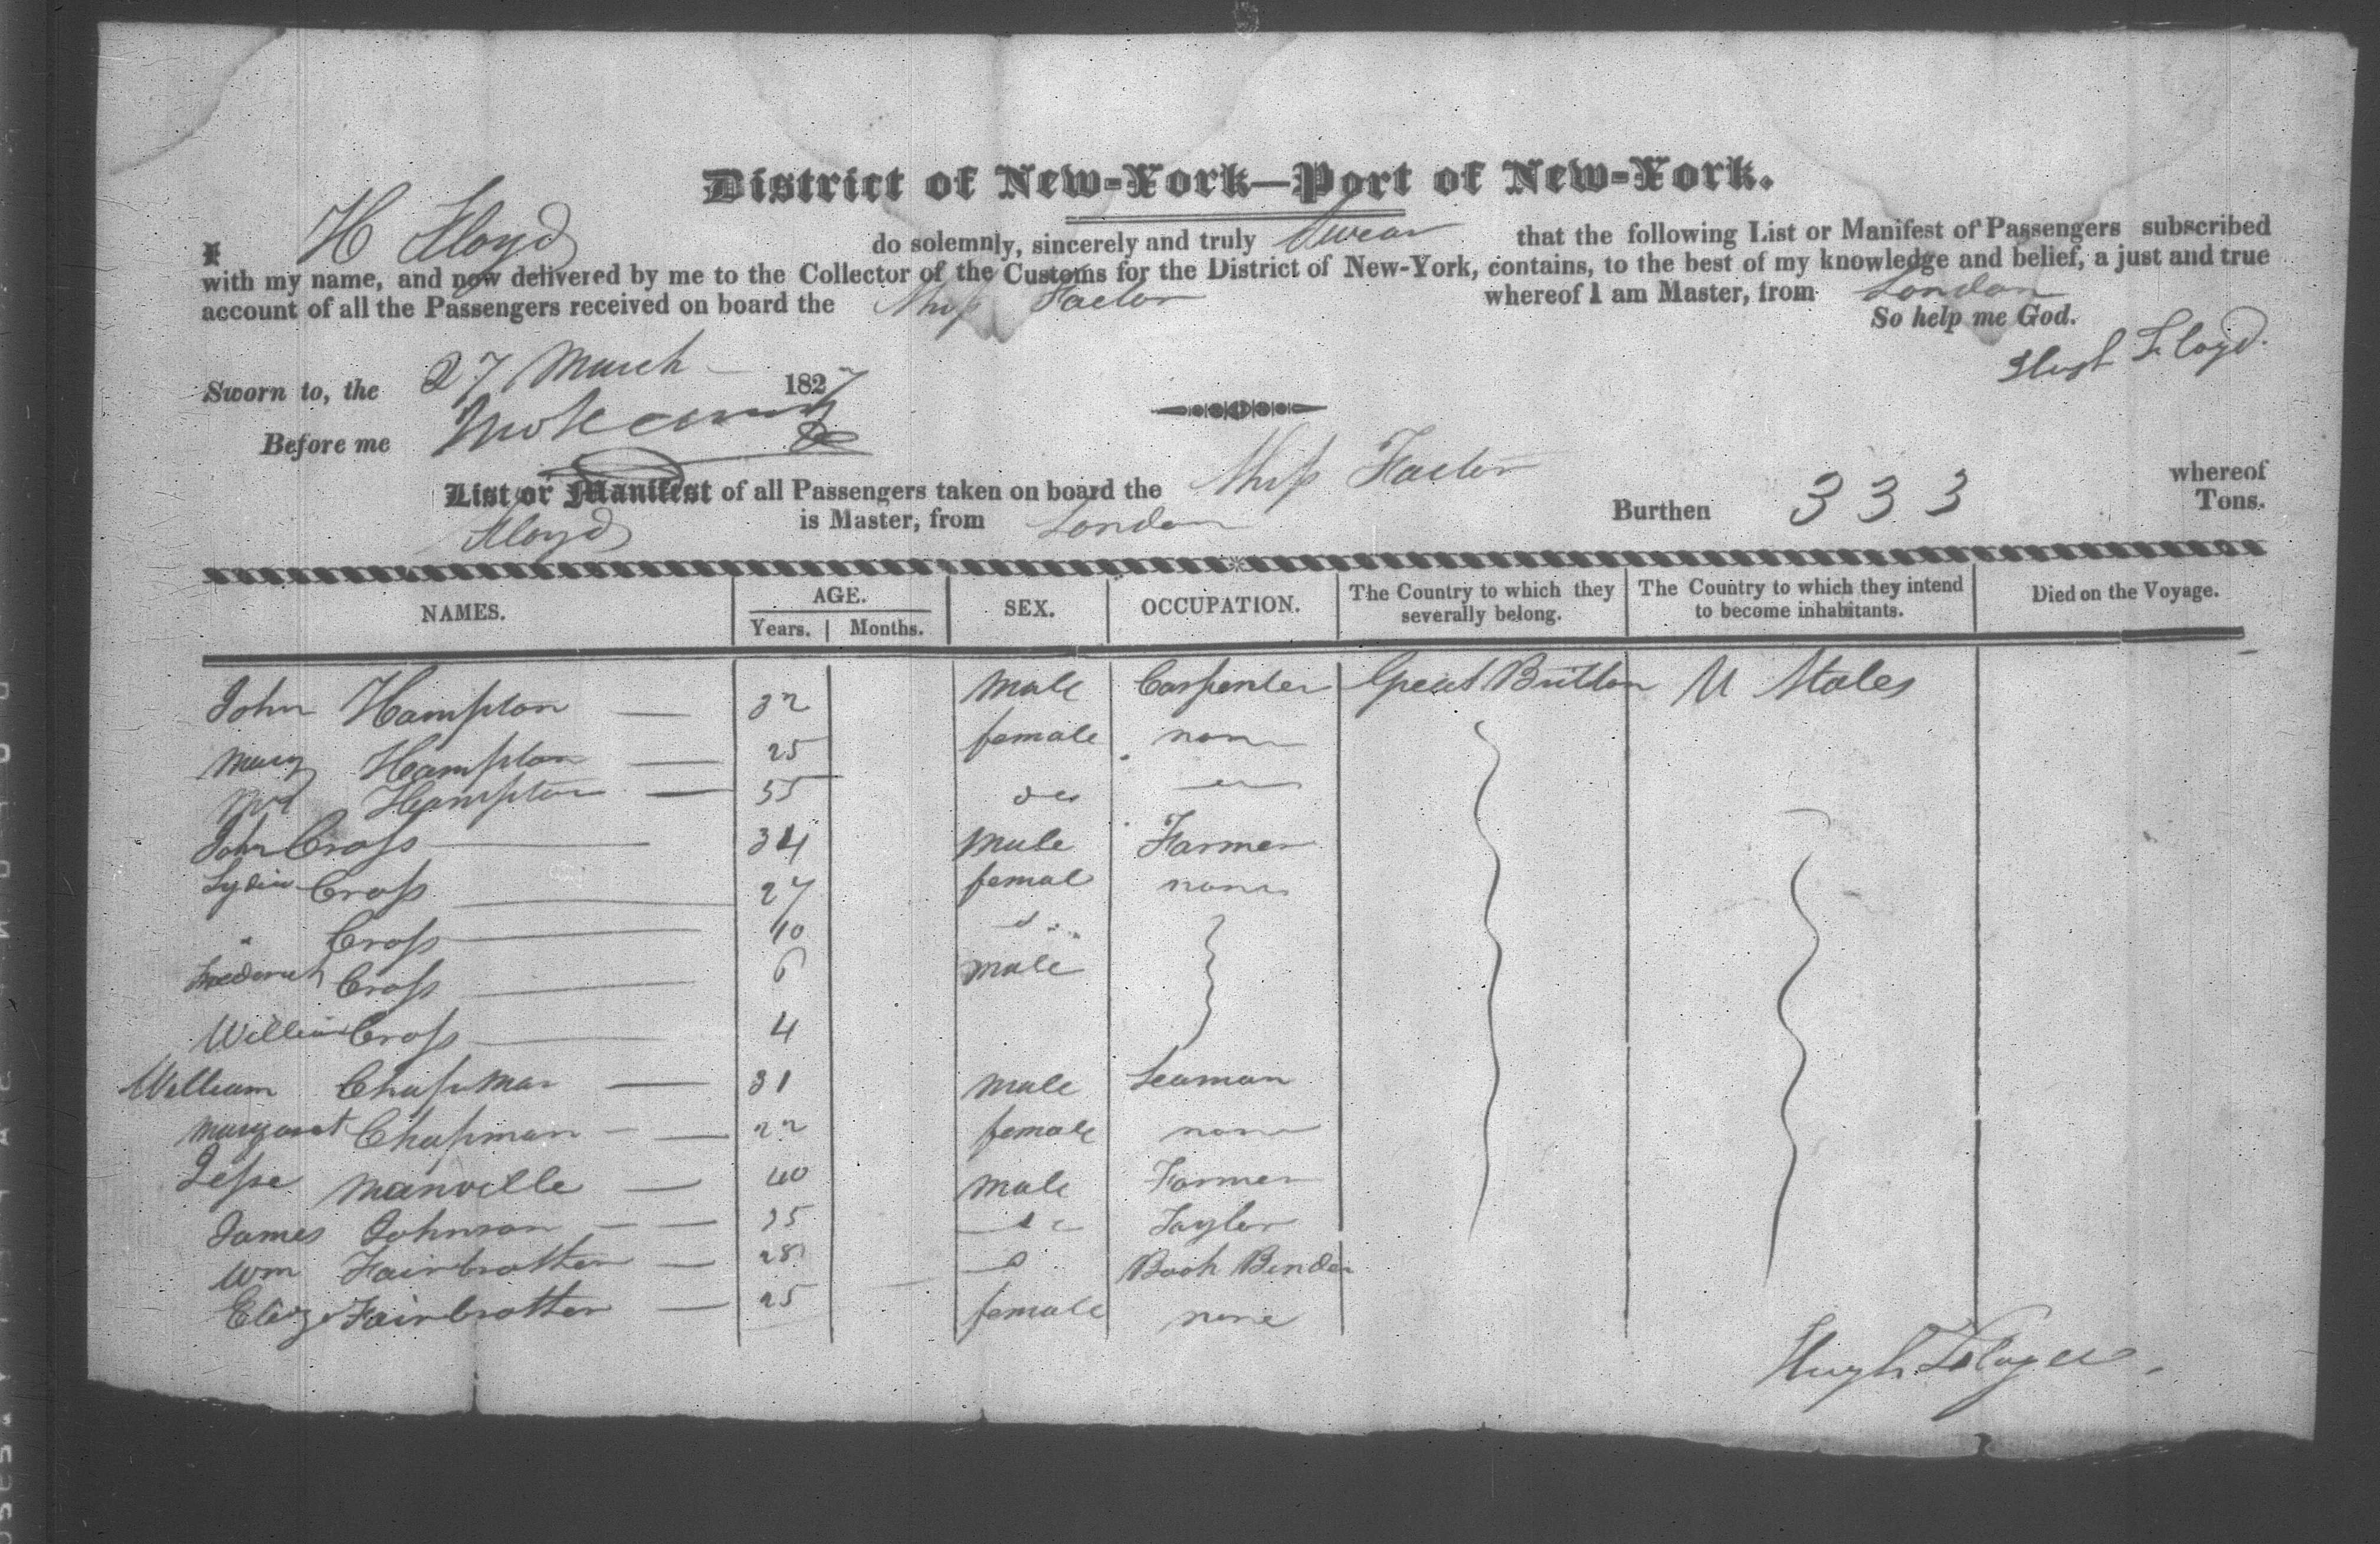 District of New-York—Port of New-York.
I H Floyd do solemnly, sincerely and truly Swear that the following List or Manifest of Passengers subscribed
with my name, and now delivered by me to the Collector of the Customs for the District of New-York, contains, to the best of my knowledge and belief, a just and true
account of all the Passengers received on board the Ship Factor whereof I am Master, from London
So help me God.
Hugh Floyd.
Sworn to, the 27 March 1827
Before me
List or Manifest of all Passengers taken on board the Ship Factor whereof
Floyd is Master, from London Burthen 333 Tons.
NAMES. AGE. SEX. OCCUPATION. The Country to which they severally belong. The Country to which they intend to become inhabitants. Died on the Voyage.
Years. Months.
John Hampton 32 Male Carpenter Great Brittan U States
Mary Hampton 25 female none
Hampton 55 do
John Cross 34 Male Farmer
Lydia Cross 27 femal none
" Cross 10 do
Frederick Cross 6 Male
William Cross 4
William Chapman 31 Male Seaman
Margaret Chapman 22 female none
Jesse Manville 40 Male Farmer
James Johnson 35 do Taylor
Wm Fairbrother 28 do Book Binder
Eliza Fairbrother 25 female none
Hugh Floyd